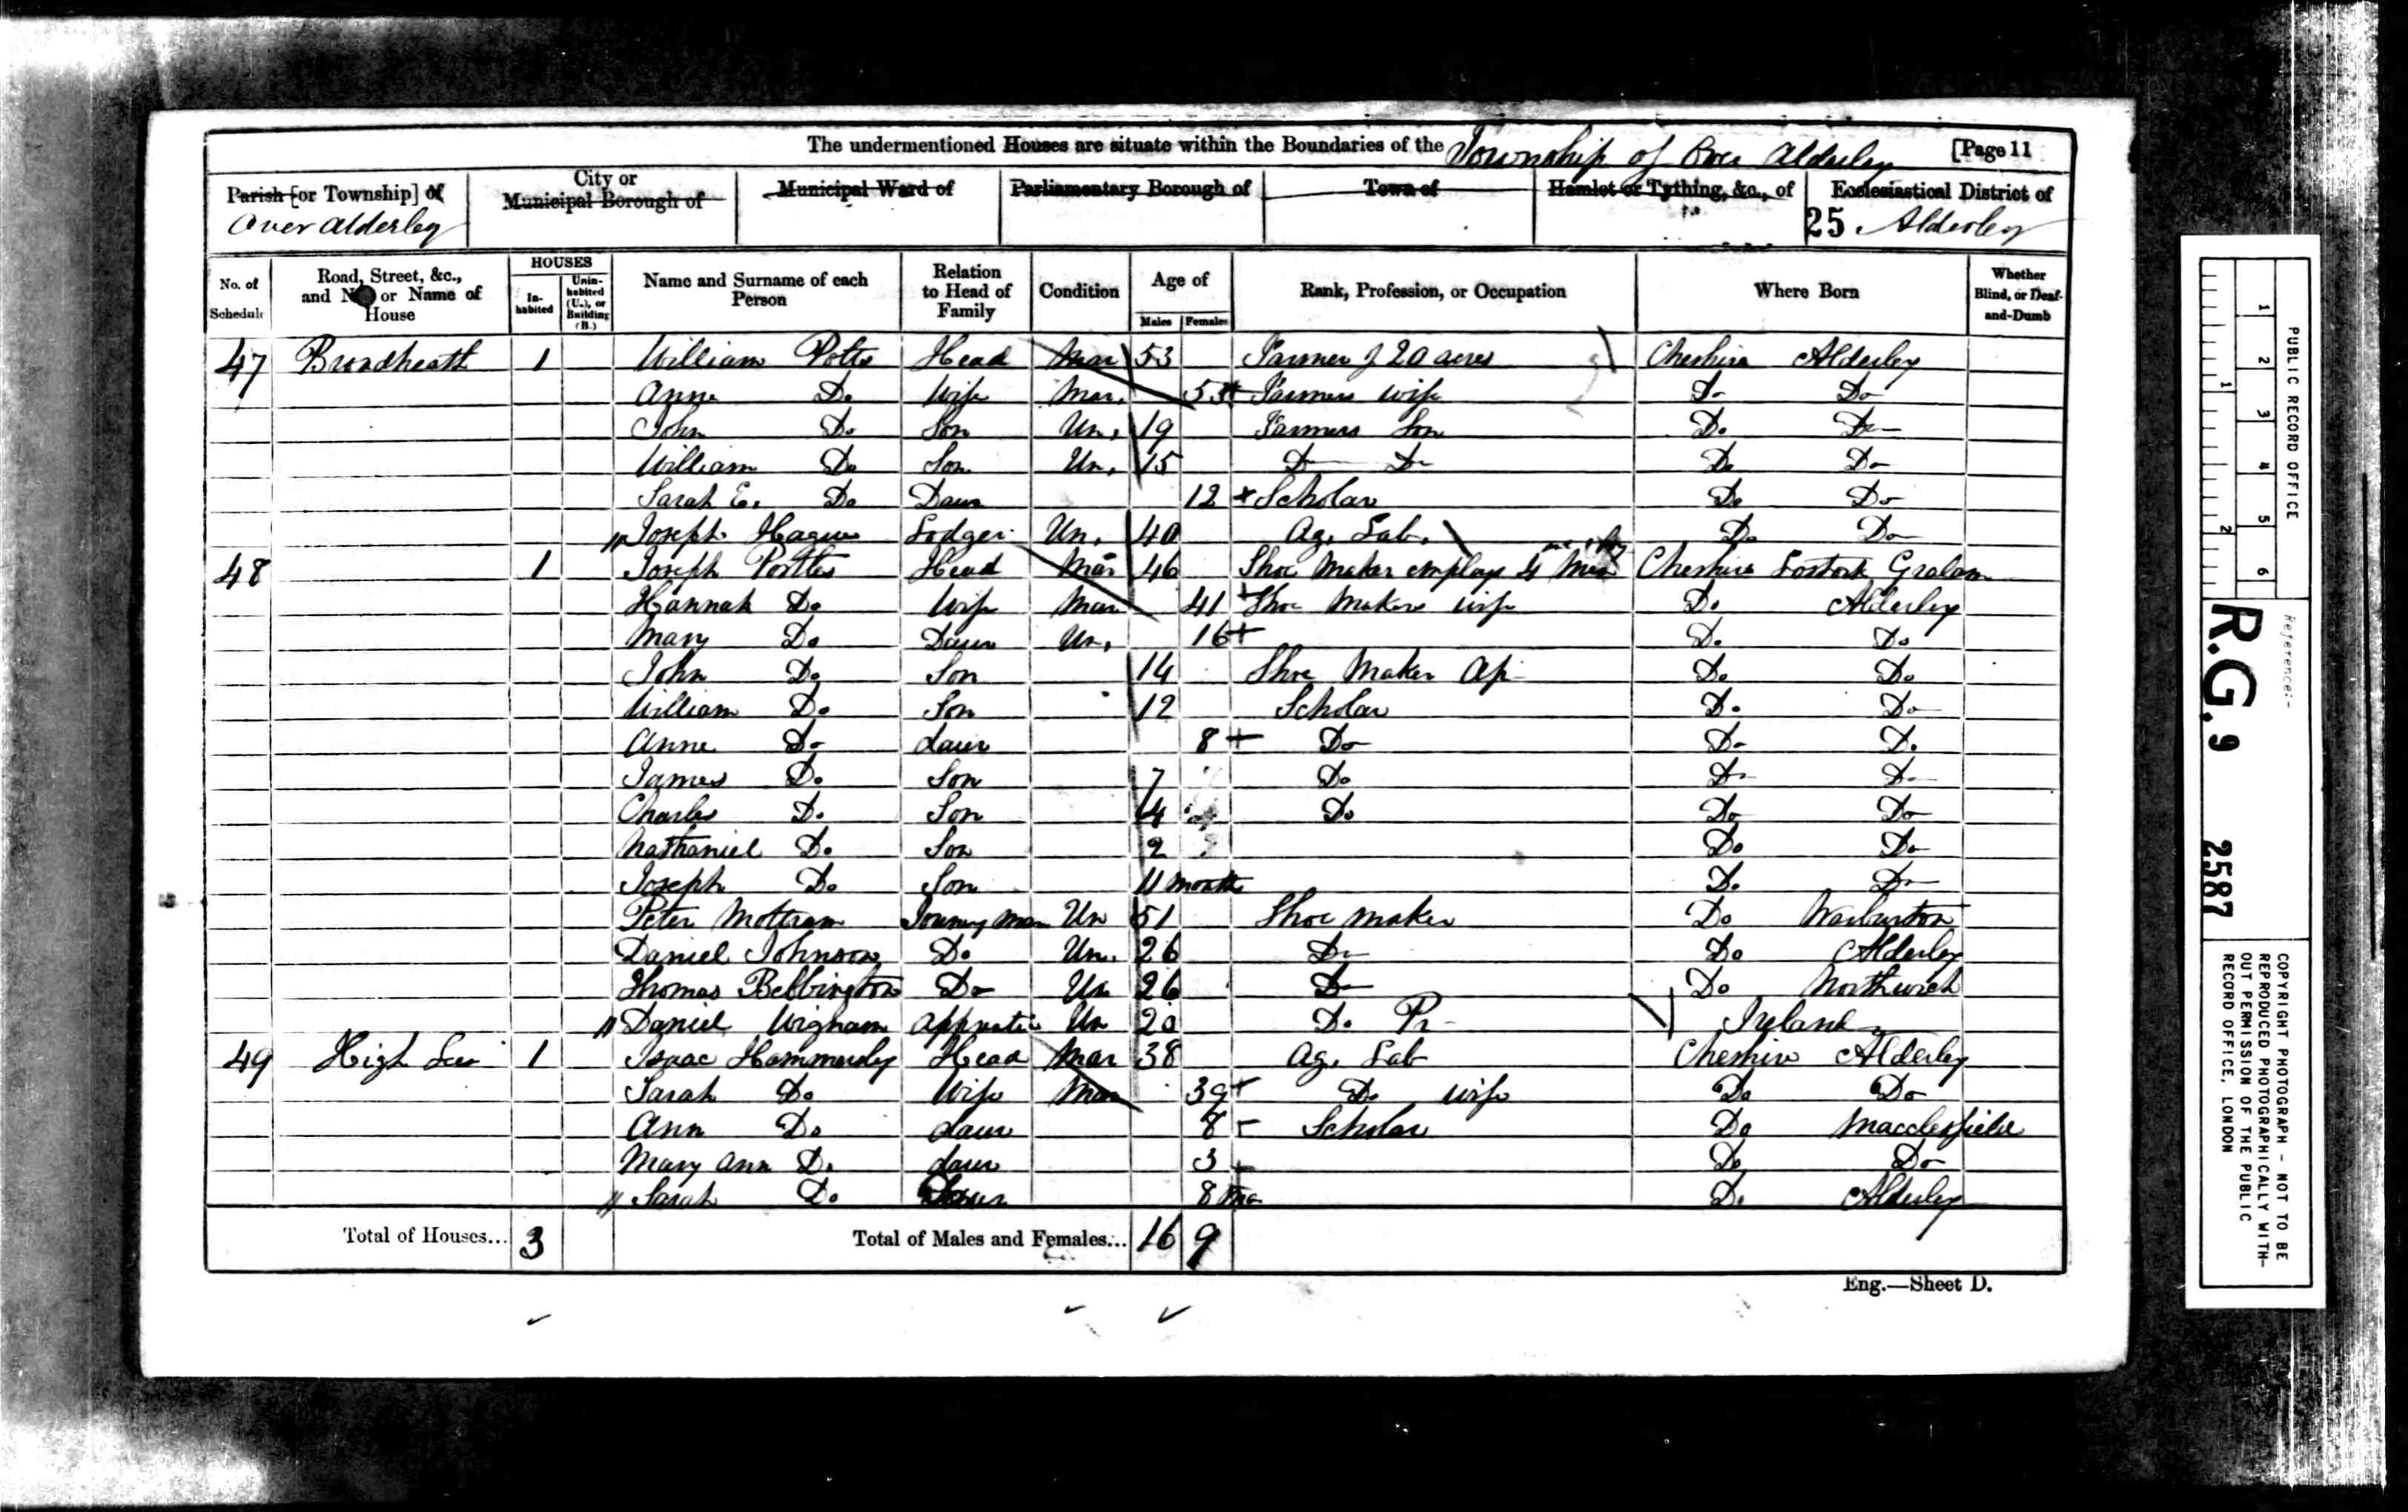 The undermentioned Houses are situate within the Boundaries of the Township of Over Alderley [Page 11
Parish [or Township] of Over Alderley
City or Municipal Borough of
Municipal Ward of
Parliamentary Borough of
Town of
Hamlet or Tything, &c., of
Ecclesiastical District of 25 Alderley
No. of Schedule | Road, Street, &c., and No. or Name of House | HOUSES In-habited | Unin-habited (U.), or Building (B.) | Name and Surname of each Person | Relation to Head of Family | Condition | Age of Males | Females | Rank, Profession, or Occupation | Where Born | Whether Blind, or Deaf-and-Dumb
47 Broadheath 1 William Potts Head Mar 53 Farmer of 20 acres Cheshire Alderley
Anne Do Wife Mar. 53 Farmers wife Do Do
John Do Son Un. 19 Farmers Son Do Do
William Do Son Un. 15 Do Do Do Do
Sarah E. Do Daur 12 Scholar Do Do
Joseph Hague Lodger Un. 40 Ag. Lab. Do Do
48 1 Joseph Potts Head Mar 46 Shoe Maker employs 4 Men Cheshire Lostock Gralam
Hannah Do Wife Mar 41 Shoe Makers wife Do Alderley
Mary Do Daur Un. 16 Do Do
John Do Son 14 Shoe Maker Ap Do Do
William Do Son 12 Scholar Do Do
Anne Do daur 8 Do Do Do
James Do Son 7 Do Do Do
Charles Do Son 4 Do Do Do
Nathaniel Do Son 2 Do Do
Joseph Do Son 11 months Do Do
Peter Mottram Journey Man Un 51 Shoe maker Do Warburton
Daniel Johnson Do Un. 26 Do Do Alderley
Thomas Bebbington Do Un 26 Do Do Northwich
Daniel Wignam Apprentice Un 20 Do Pr Ireland
49 High Lee 1 Isaac Hammersley Head Mar 38 Ag. Lab Cheshire Alderley
Sarah Do Wife Mar 39 Do wife Do Do
Ann Do daur 8 Scholar Do Macclesfield
Mary Ann Do daur 3 Do Do
Sarah Do Daur 8 mo Do Alderley
Total of Houses... 3 Total of Males and Females... 16 9
Eng.—Sheet D.
PUBLIC RECORD OFFICE
1 2 3 4 5 6
1 2
Reference:-
R.G. 9 2587
COPYRIGHT PHOTOGRAPH - NOT TO BE
REPRODUCED PHOTOGRAPHICALLY WITH-
OUT PERMISSION OF THE PUBLIC
RECORD OFFICE, LONDON